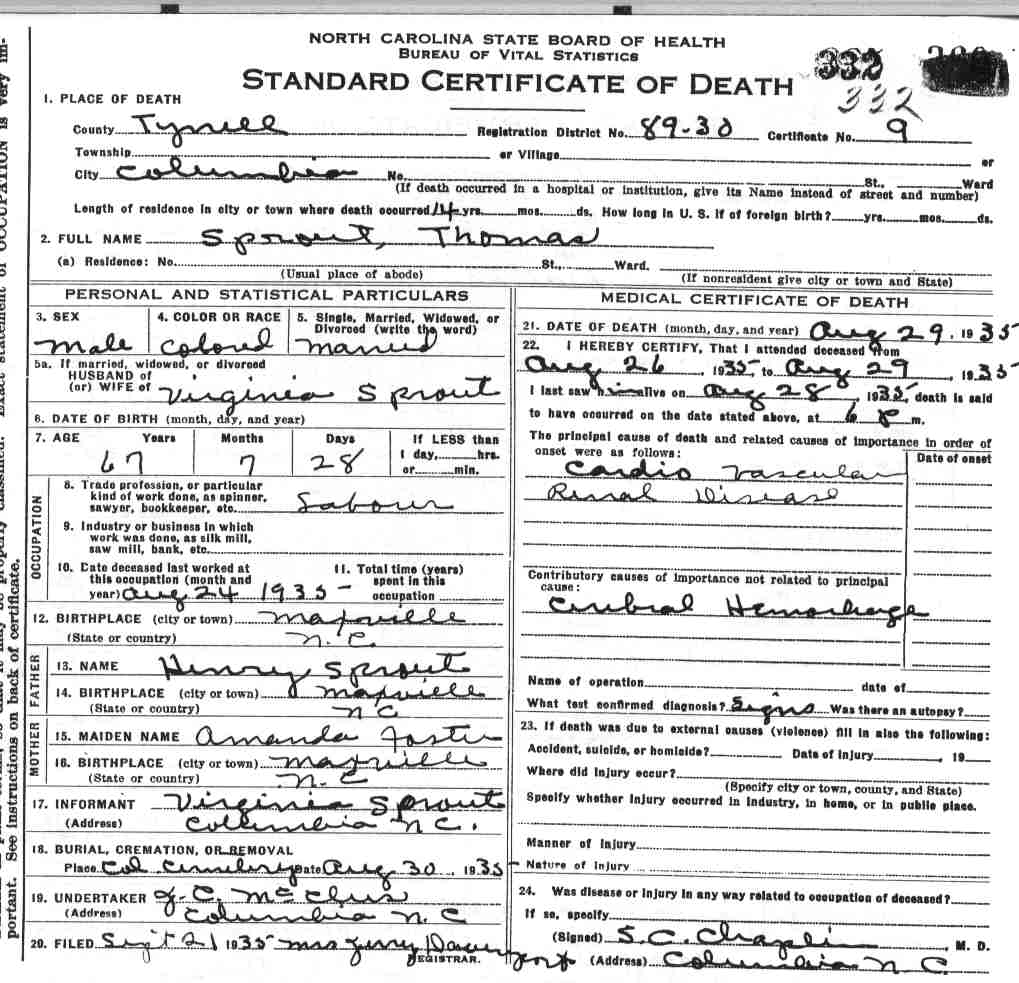 NORTH CAROLINA STATE BOARD OF HEALTH
BUREAU OF VITAL STATISTICS
STANDARD CERTIFICATE OF DEATH
332
332
1. PLACE OF DEATH
County Tyrrell Registration District No. 89-30 Certificate No. 9
Township or Village or
City Columbia No. St., Ward
(If death occurred in a hospital or institution, give its Name instead of street and number)
Length of residence in city or town where death occurred 14 yrs. mos. ds. How long in U. S. if of foreign birth? yrs. mos. ds.
2. FULL NAME Sprout, Thomas
(a) Residence: No. St., Ward.
(Usual place of abode) (If nonresident give city or town and State)
PERSONAL AND STATISTICAL PARTICULARS
3. SEX 4. COLOR OR RACE 5. Single, Married, Widowed, or
Divorced (write the word)
Male Colored Married
5a. If married, widowed, or divorced
HUSBAND of
(or) WIFE of Virginia Sprout
6. DATE OF BIRTH (month, day, and year)
7. AGE Years Months Days If LESS than
1 day, hrs.
67 7 28 or min.
OCCUPATION
8. Trade profession, or particular
kind of work done, as spinner,
sawyer, bookkeeper, etc. Labour
9. Industry or business in which
work was done, as silk mill,
saw mill, bank, etc.
10. Date deceased last worked at 11. Total time (years)
this occupation (month and spent in this
year) Aug 24 1935 occupation
12. BIRTHPLACE (city or town)
(State or country) N. C.
FATHER
13. NAME Henry Sprout
14. BIRTHPLACE (city or town)
(State or country) N C
MOTHER
15. MAIDEN NAME Amanda Foster
16. BIRTHPLACE (city or town)
(State or country) N. C
17. INFORMANT Virginia Sprout
(Address) Collumbia N C.
18. BURIAL, CREMATION, OR REMOVAL
Place Col Cemetery Date Aug 30, 1935
19. UNDERTAKER
(Address) Columbia N. C
20. FILED Sept 21 1935 Mrs Davenport
REGISTRAR.
MEDICAL CERTIFICATE OF DEATH
21. DATE OF DEATH (month, day, and year) Aug 29, 1935
22. I HEREBY CERTIFY, That I attended deceased from
Aug 26, 1935, to Aug 29, 1935
I last saw him alive on Aug 28, 1935, death is said
to have occurred on the date stated above, at 6 P m.
The principal cause of death and related causes of importance in order of
onset were as follows: Date of onset
Cardio Vascular
Renal Disease
Contributory causes of importance not related to principal
cause:
Cerebral Hemorrhage
Name of operation date of
What test confirmed diagnosis? Signs Was there an autopsy?
23. If death was due to external causes (violence) fill in also the following:
Accident, suicide, or homicide? Date of injury, 19
Where did injury occur?
(Specify city or town, county, and State)
Specify whether injury occurred in industry, in home, or in public place.
Manner of Injury
Nature of Injury
24. Was disease or injury in any way related to occupation of deceased?
If so, specify
(Signed) S. C. Chaplin, M. D.
(Address) Columbia N C.
portant. See instructions on back of certificate.